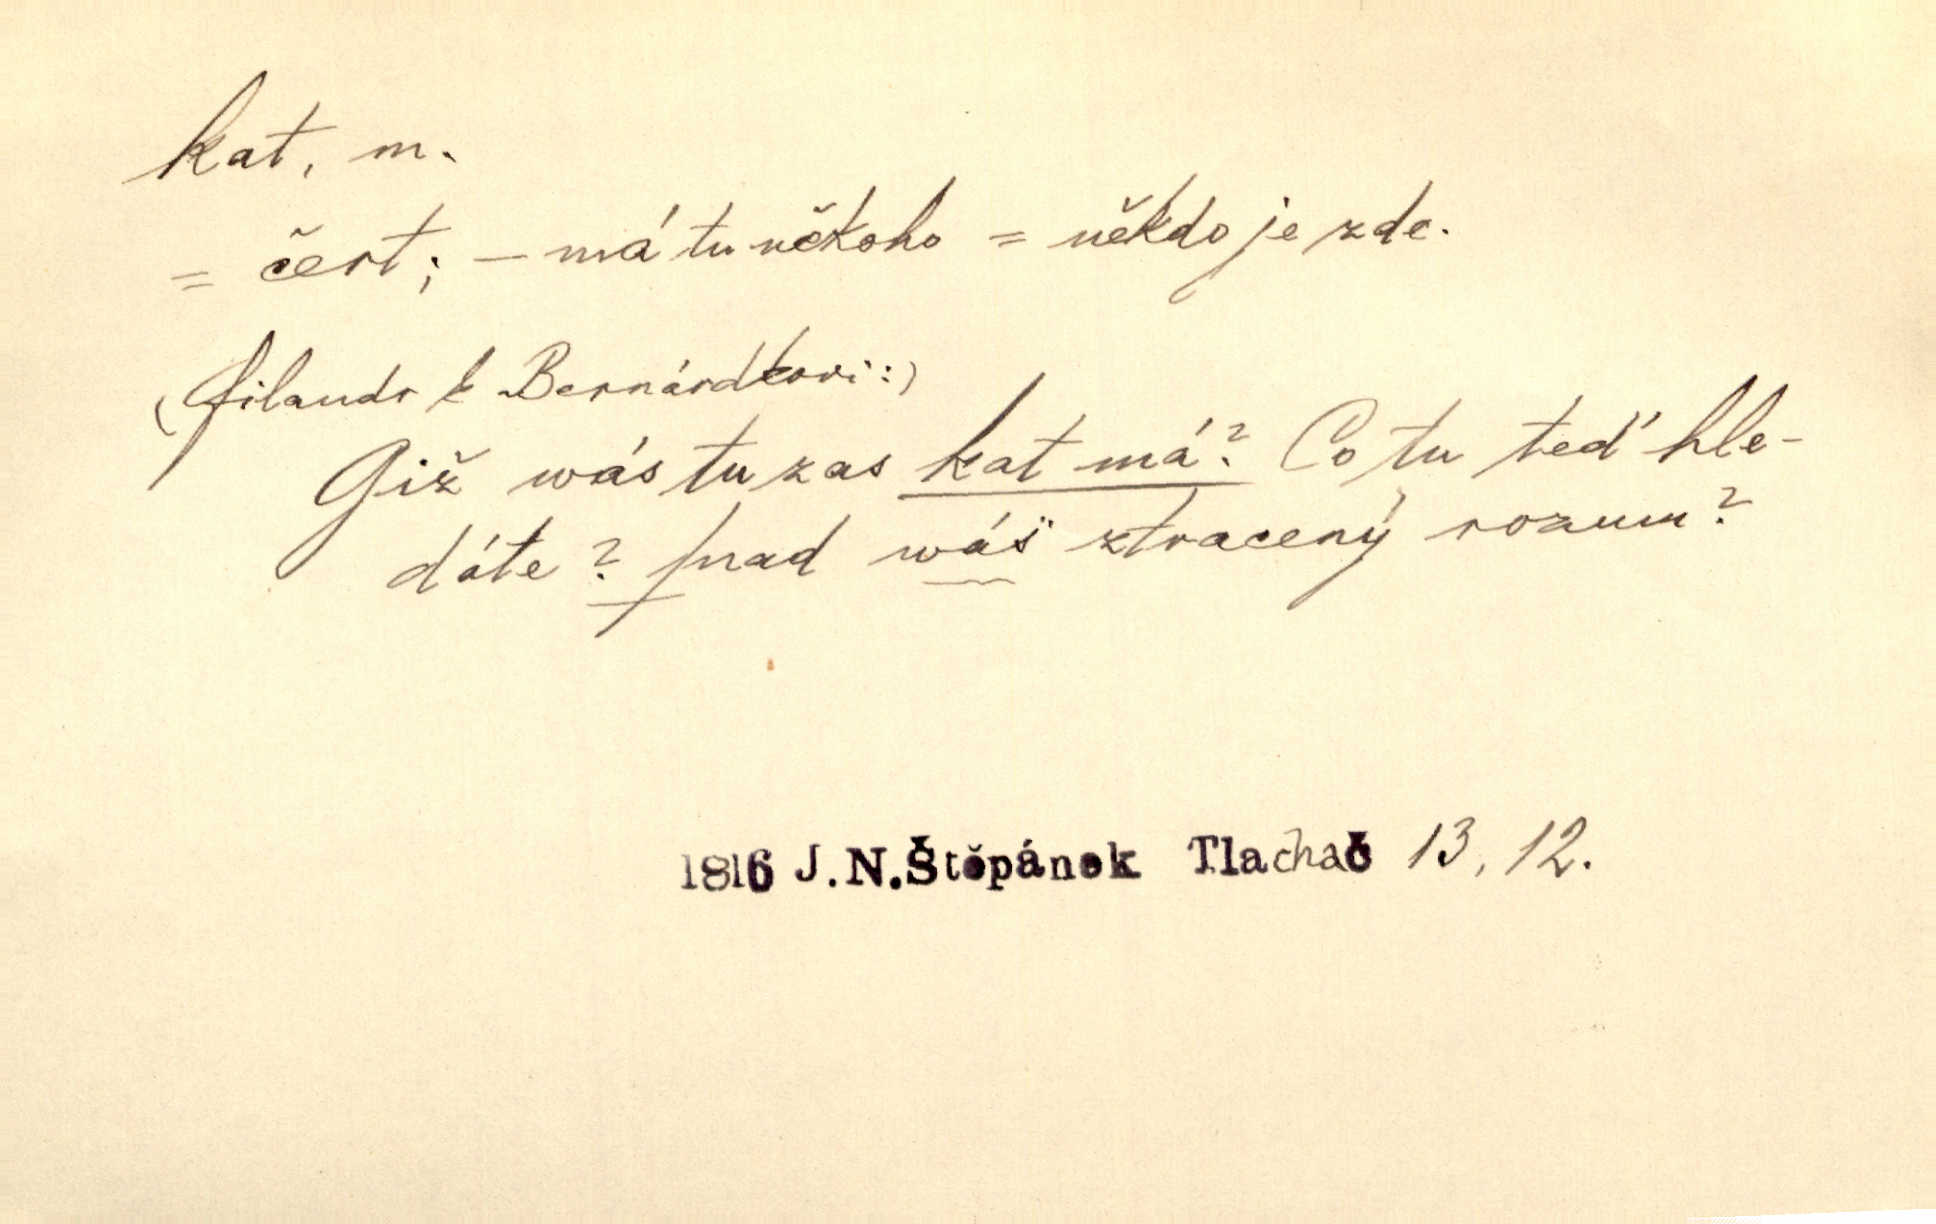 kat, m.
= čert; – má tu někoho = někdo je zde.
(filandr k Bernárdkovi:)
Giž wás tu zas kat má? Co tu teď hle-
dáte? snad wáš ztracený rozum?
1816 J.N.Štěpánek Tlachač 13, 12.